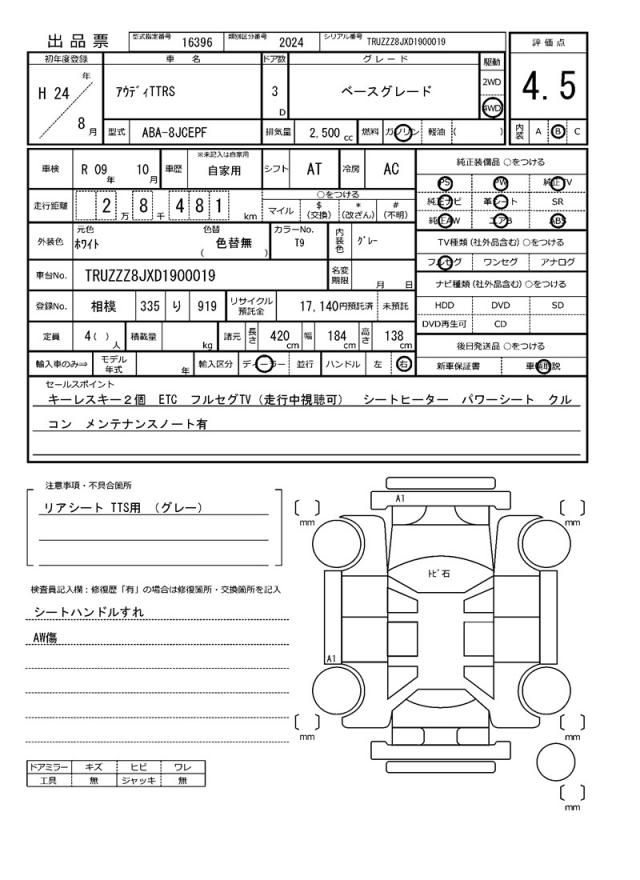 出品票 型式指定番号 16396 類別区分番号 2024 シリアル番号 TRUZZZ8JXD1900019
評価点
4.5
初年度登録 車名 ドア数 グレード 駆動
H 24 年 8 月 アウディTTRS 3 D ベースグレード 2WD 4WD
型式 ABA-8JCEPF 排気量 2,500 cc 燃料 ガソリン 軽油 ( ) 内装 A B C
車検 R 09 年 10 月 車歴 ※未記入は自家用 自家用 シフト AT 冷房 AC
走行距離 2 万 8 千 4 8 1 km ○をつける
マイル $ (交換) * (改ざん) # (不明)
外装色 元色 ホワイト 色替 ( 色替無 ) カラーNo. T9 内装色 グレー
車台No. TRUZZZ8JXD1900019 名変期限 月 日
登録No. 相模 335 り 919 リサイクル預託金 17,140円預託済 未預託
定員 4( ) 人 積載量 kg 諸元 長さ 420 cm 幅 184 cm 高さ 138 cm
輸入車のみ⇒ モデル年式 年 輸入区分 ディーラー 並行 ハンドル 左 右
純正装備品 ○をつける
PS PW 純正TV
純正ナビ 革シート SR
純正AW エアB ABS
TV種類 (社外品含む) ○をつける
フルセグ ワンセグ アナログ
ナビ種類 (社外品含む) ○をつける
HDD DVD SD
DVD再生可 CD
後日発送品 ○をつける
新車保証書 車輌取説
セールスポイント
キーレスキー2個 ETC フルセグTV(走行中視聴可) シートヒーター パワーシート クル
コン メンテナンスノート有
注意事項・不具合箇所
リアシート TTS用 (グレー)
検査員記入欄:修復歴「有」の場合は修復箇所・交換箇所を記入
シートハンドルすれ
AW傷
ドアミラー キズ ヒビ ワレ
工具 無 ジャッキ 無
A1
mm
mm
トビ石
A1
mm
mm
mm